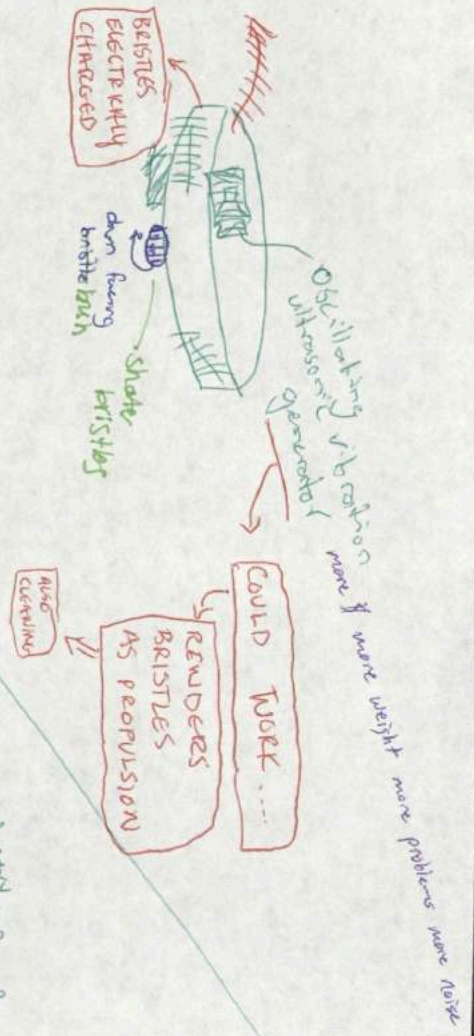 BRISTLES
ELECTRICALLY
CHARGED
down facing
bristle brush
bristles
oscillating vibration
ultrasonic
generator
more $ more weight more problems more noise
COULD WORK....
RENDERS
BRISTLES
AS PROPULSION
ALSO
CLEANING